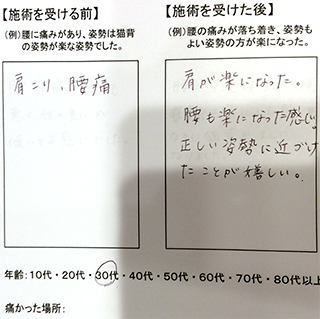 【施術を受ける前】
(例)腰に痛みがあり、姿勢は猫背
の姿勢が楽な姿勢でした。
肩こり、腰痛
【施術を受けた後】
(例)腰の痛みが落ち着き、姿勢も
よい姿勢の方が楽になった。
肩が楽になった。
腰も楽になった感じ。
正しい姿勢に近づけ
たことが嬉しい。
年齢:10代・20代・30代・40代・50代・60代・70代・80代以上
痛かった場所: